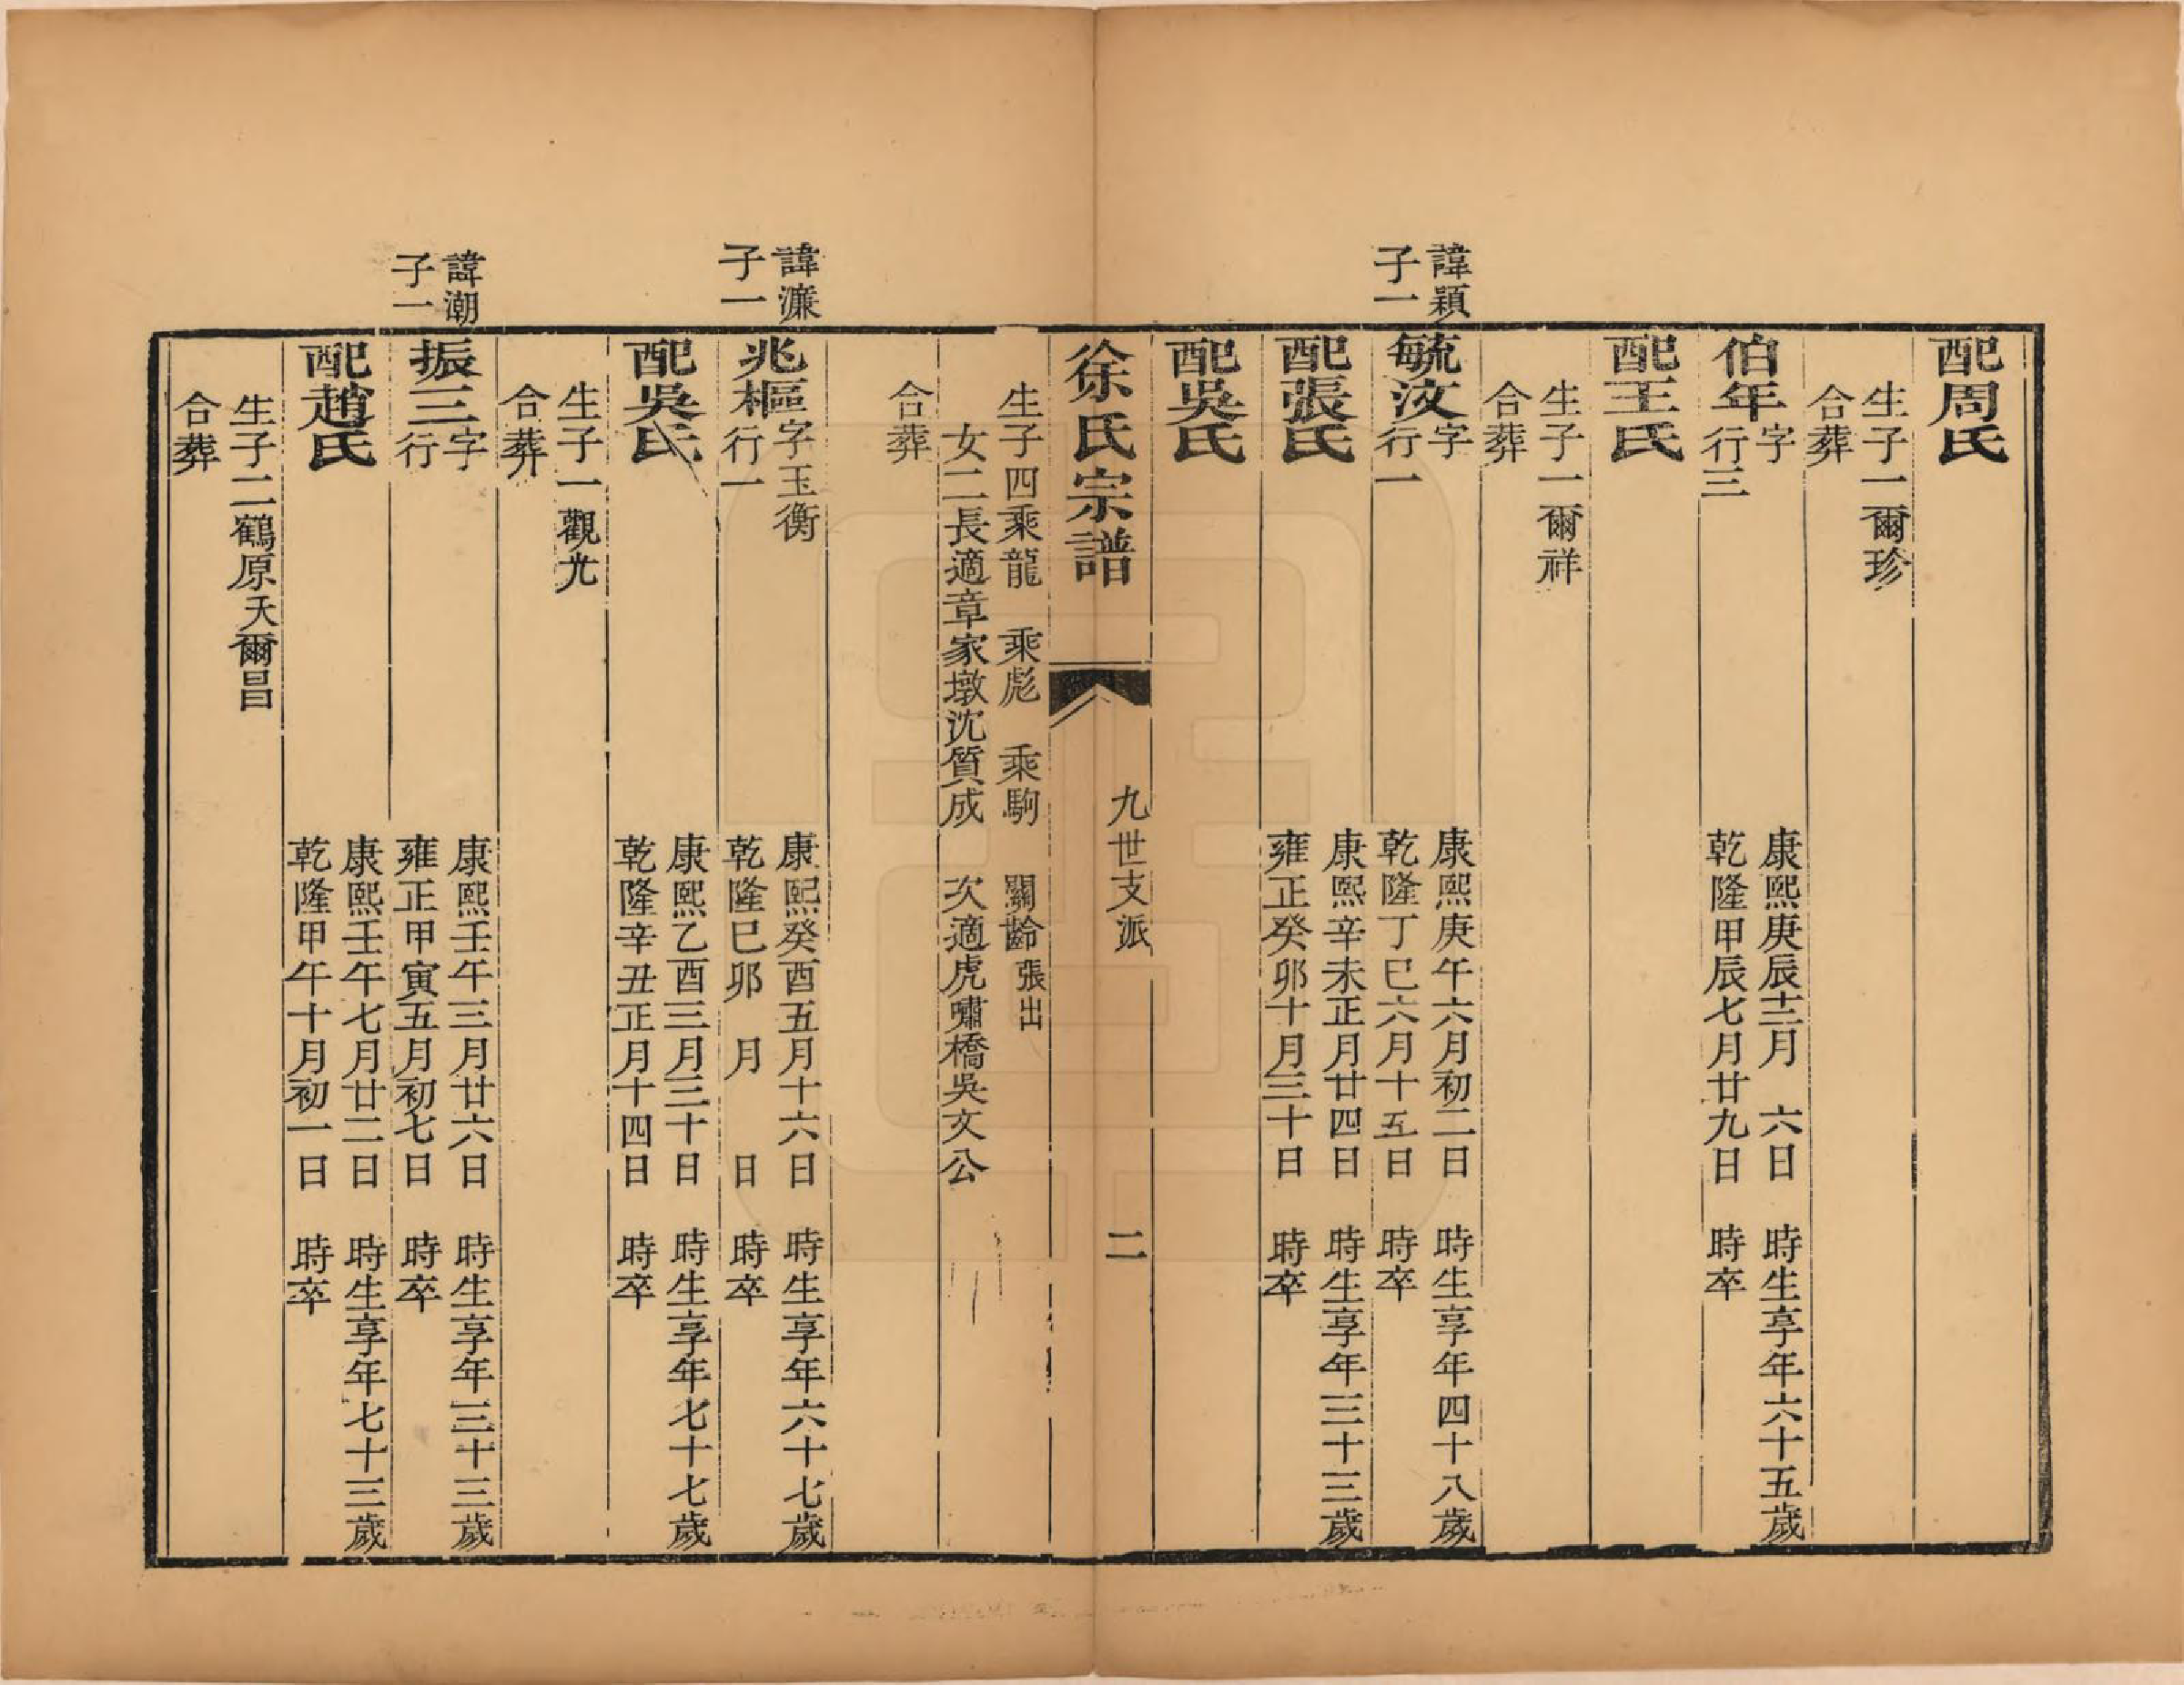 配周氏
生子一爾珍
合葬
伯年字
行三
康熙庚辰十二月 六日 時生享年六十五歲
乾隆甲辰七月廿九日 時卒
配王氏
生子一爾祥
合葬
諱穎
子一
毓汶字
行一
康熙庚午六月初二日 時生享年四十八歲
乾隆丁巳六月十五日 時卒
配張氏
康熙辛未正月廿四日 時生享年三十三歲
雍正癸卯十月三十日 時卒
配吳氏
徐氏宗譜 九世支派 二
生子四乘龍 乘彪 乘駒 關齡張出
女二長適章家墩沈質成 次適虎嘯橋吳文公
合葬
諱濂
子一
兆樞字玉衡
行一
康熙癸酉五月十六日 時生享年六十七歲
乾隆巳卯 月 日 時卒
配吳氏
康熙乙酉三月三十日 時生享年七十七歲
乾隆辛丑正月十四日 時卒
生子一觀光
合葬
諱潮
子一
振三字
行
康熙壬午三月廿六日 時生享年三十三歲
雍正甲寅五月初七日 時卒
配趙氏
康熙壬午七月廿二日 時生享年七十三歲
乾隆甲午十月初一日 時卒
生子二鶴原夭爾昌
合葬